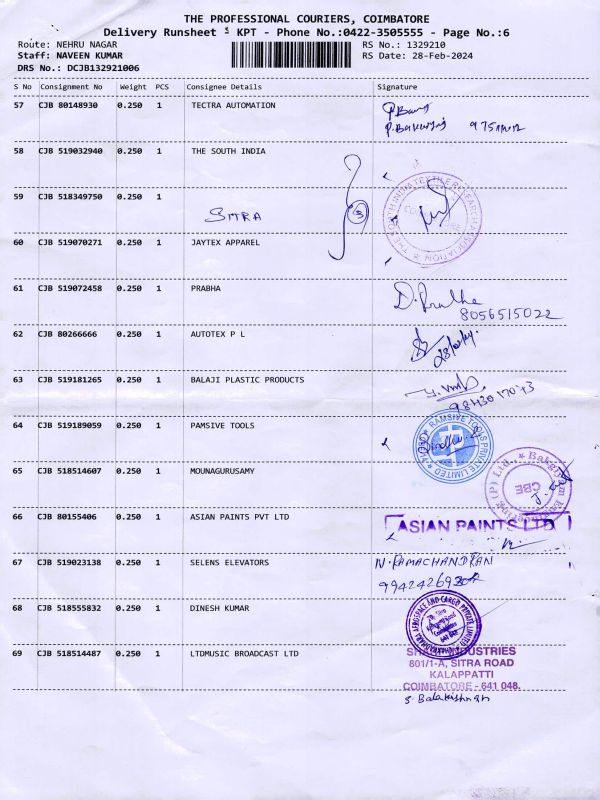 THE PROFESSIONAL COURIERS, COIMBATORE
Delivery Runsheet KPT - Phone No.:0422-3505555 - Page No.:6
Route: NEHRU NAGAR RS No.: 1329210
Staff: NAVEEN KUMAR RS Date: 28-Feb-2024
DRS No.: DCJB132921006
S No Consignment No Weight PCS Consignee Details Signature
57 CJB 80148930 0.250 1 TECTRA AUTOMATION
58 CJB 519032940 0.250 1 THE SOUTH INDIA
59 CJB 518349750 0.250 1
SITRA
THE SOUTH INDIA TEXTILE RESEARCH ASSOCIATION
60 CJB 519070271 0.250 1 JAYTEX APPAREL
61 CJB 519072458 0.250 1 PRABHA
D. Prabha
8056515022
62 CJB 80266666 0.250 1 AUTOTEX P L
63 CJB 519181265 0.250 1 BALAJI PLASTIC PRODUCTS
64 CJB 519189059 0.250 1 PAMSIVE TOOLS
RAMSIVE TOOLS PRIVATE LIMITED
65 CJB 518514607 0.250 1 MOUNAGURUSAMY
CBE
66 CJB 80155406 0.250 1 ASIAN PAINTS PVT LTD
ASIAN PAINTS LTD
67 CJB 519023138 0.250 1 SELENS ELEVATORS
N. RAMACHANDRAN
68 CJB 518555832 0.250 1 DINESH KUMAR
AEROSPACE AND CARGO PRIVATE LIMITED
69 CJB 518514487 0.250 1 LTDMUSIC BROADCAST LTD
INDUSTRIES
801/1-A, SITRA ROAD
KALAPPATTI
COIMBATORE - 641 048.
S. Balakrishnan